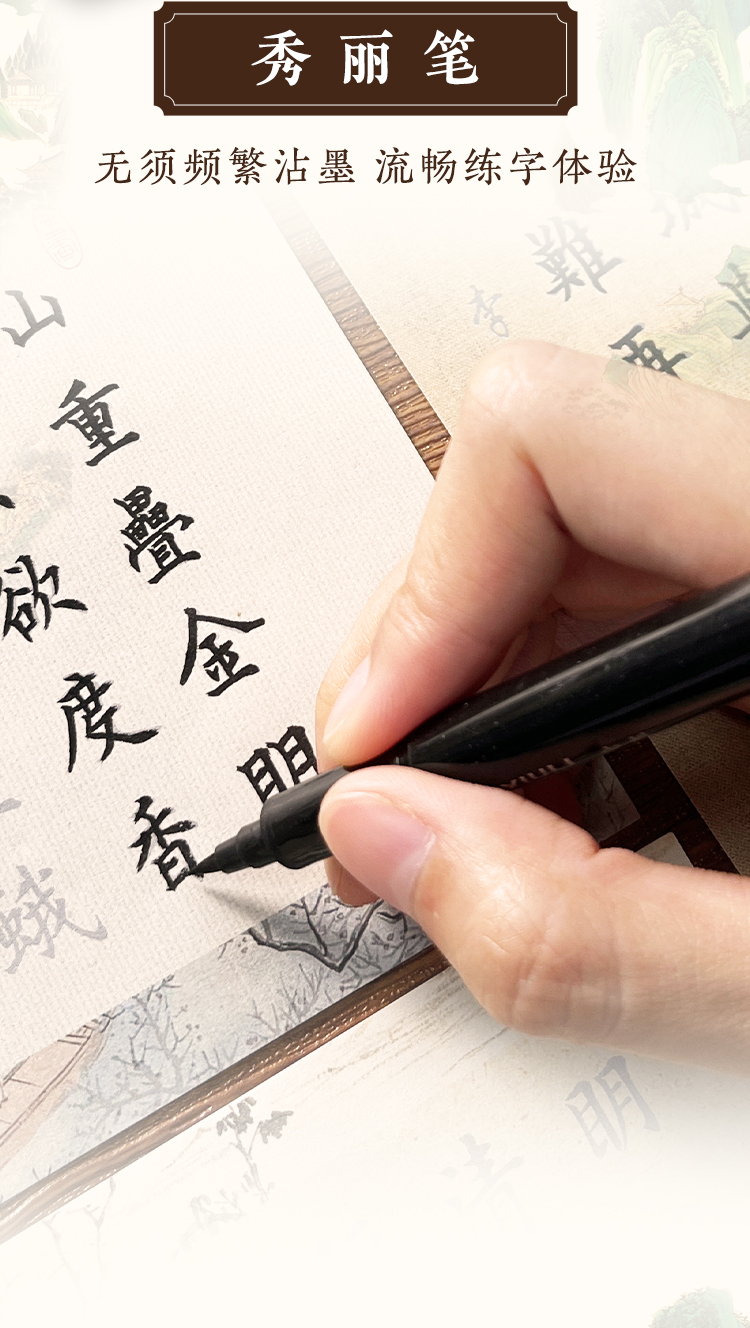 秀丽笔
无须频繁沾墨 流畅练字体验
難
李
山
重
疊
金
明
欲
度
香
蛾
明
清